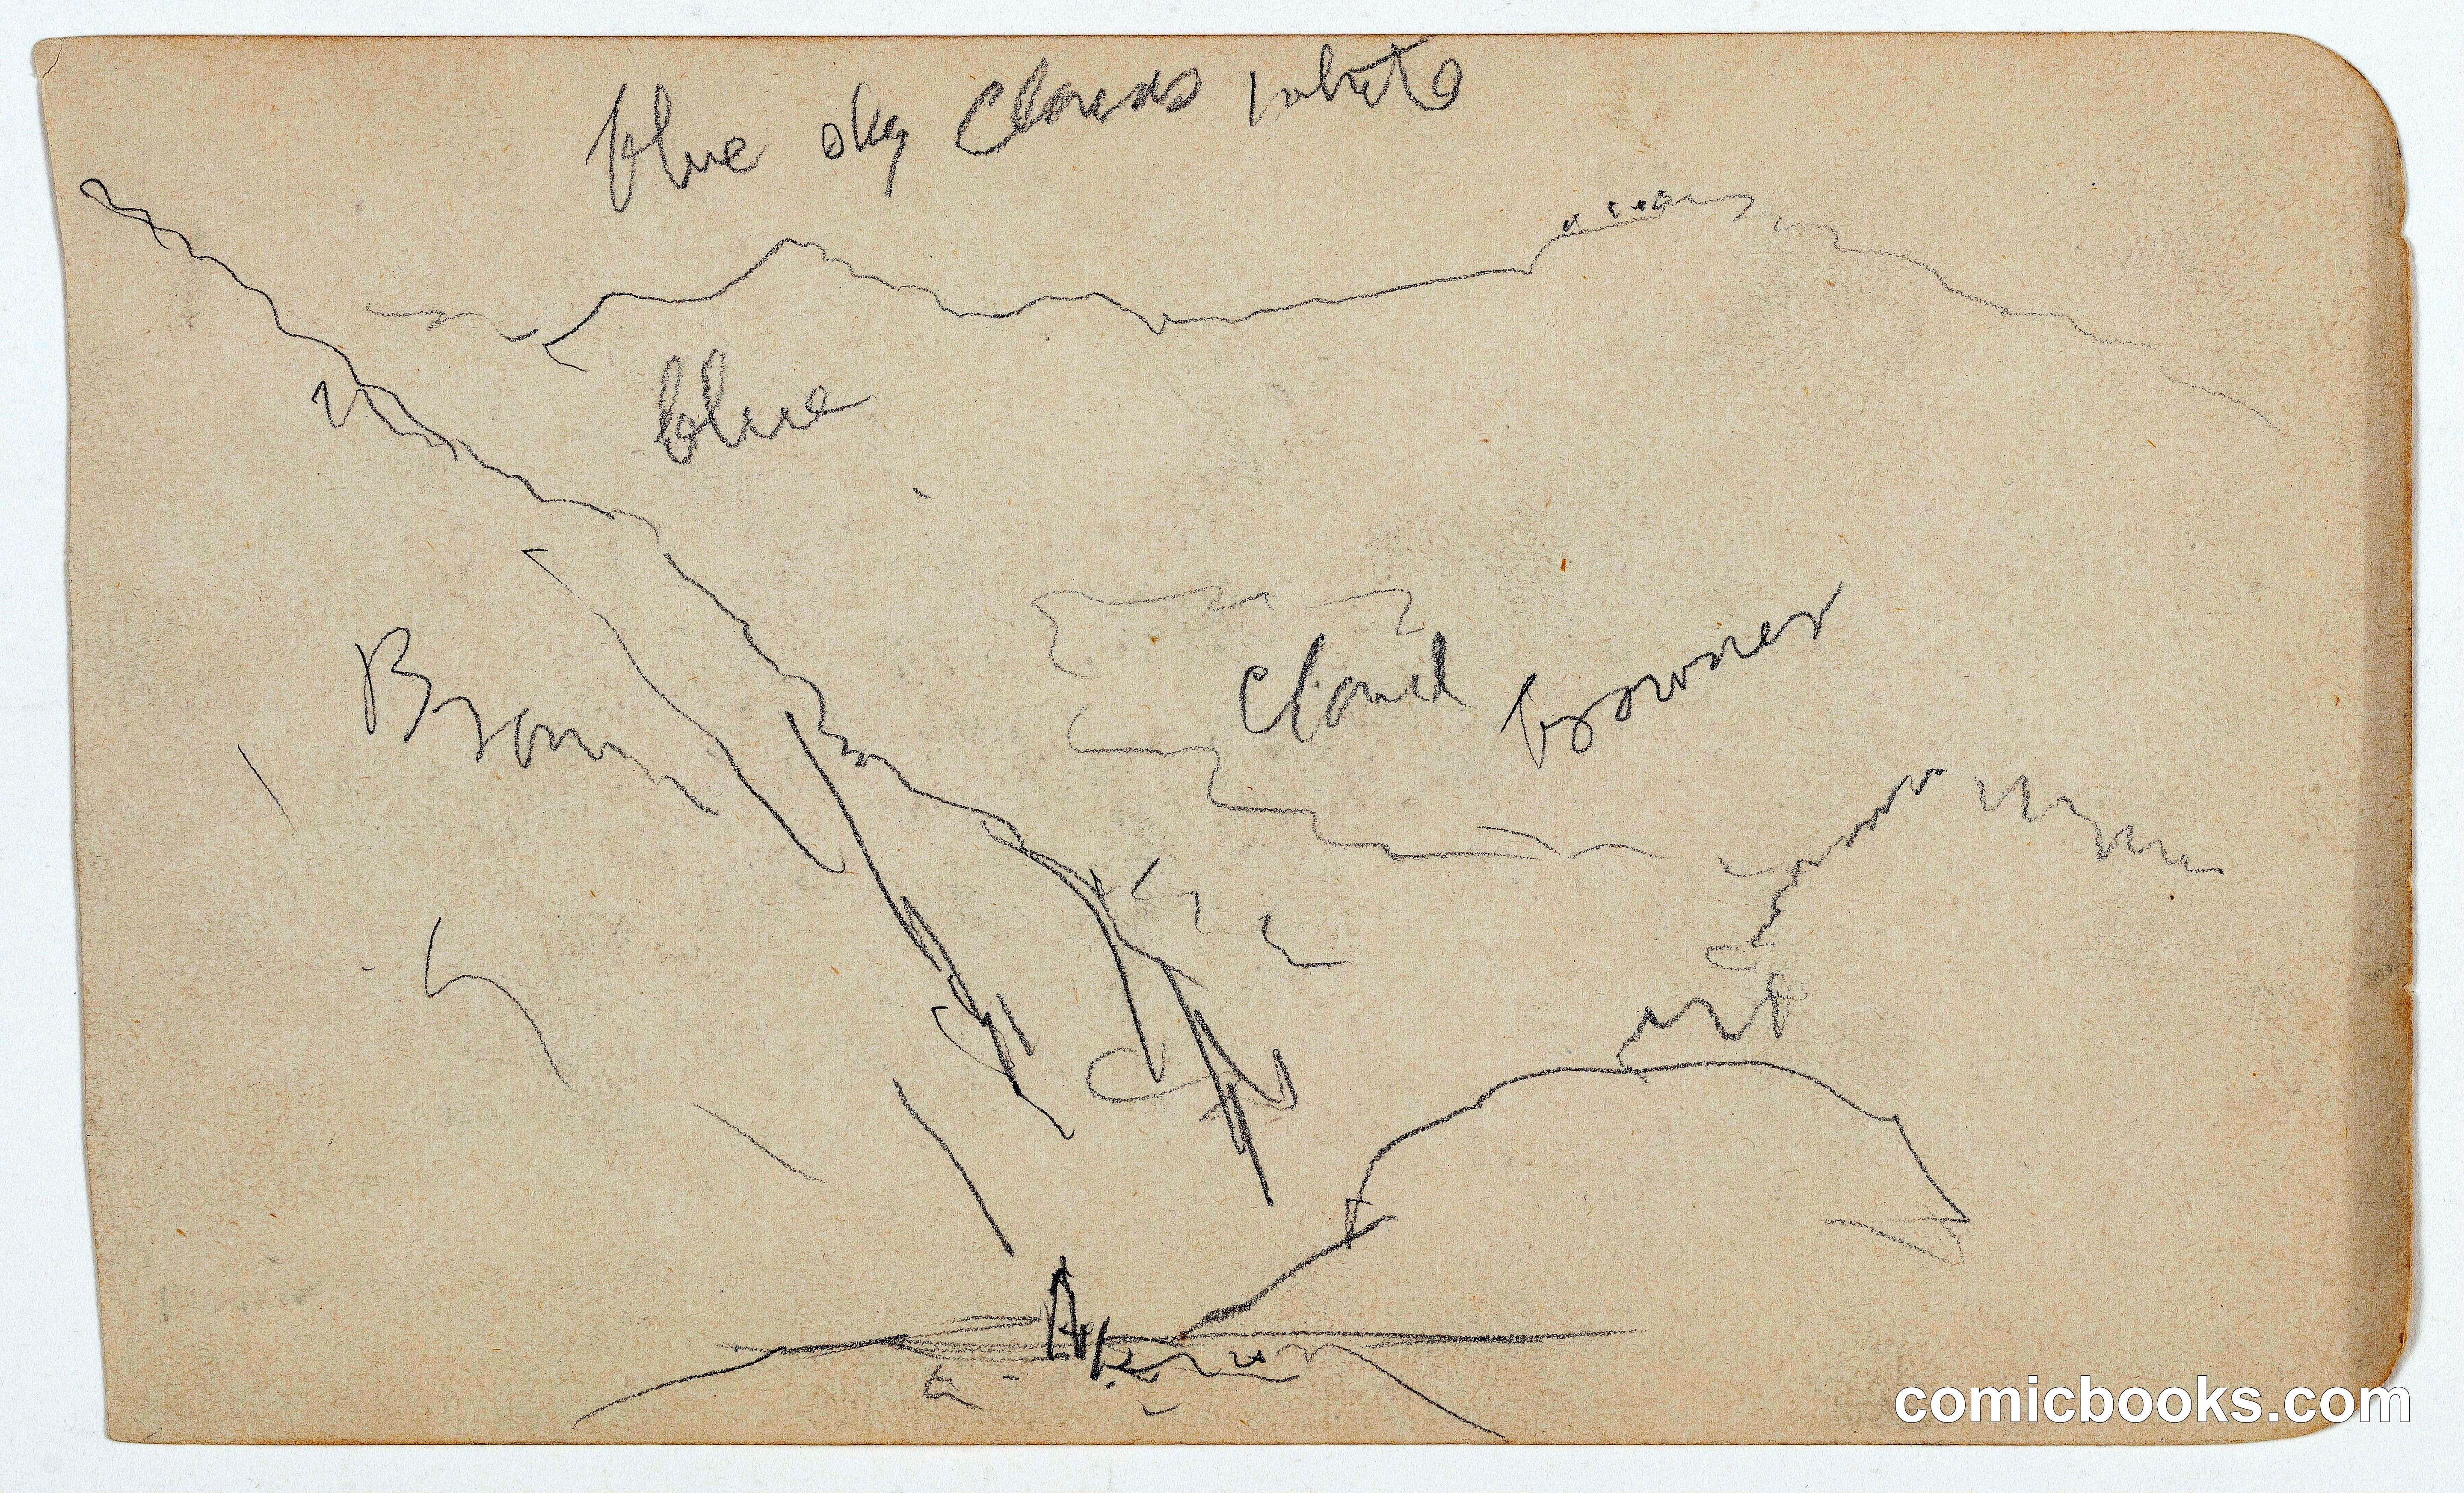 blue sky Clouds white
blue
Cloud browner
Brown
comicbooks.com